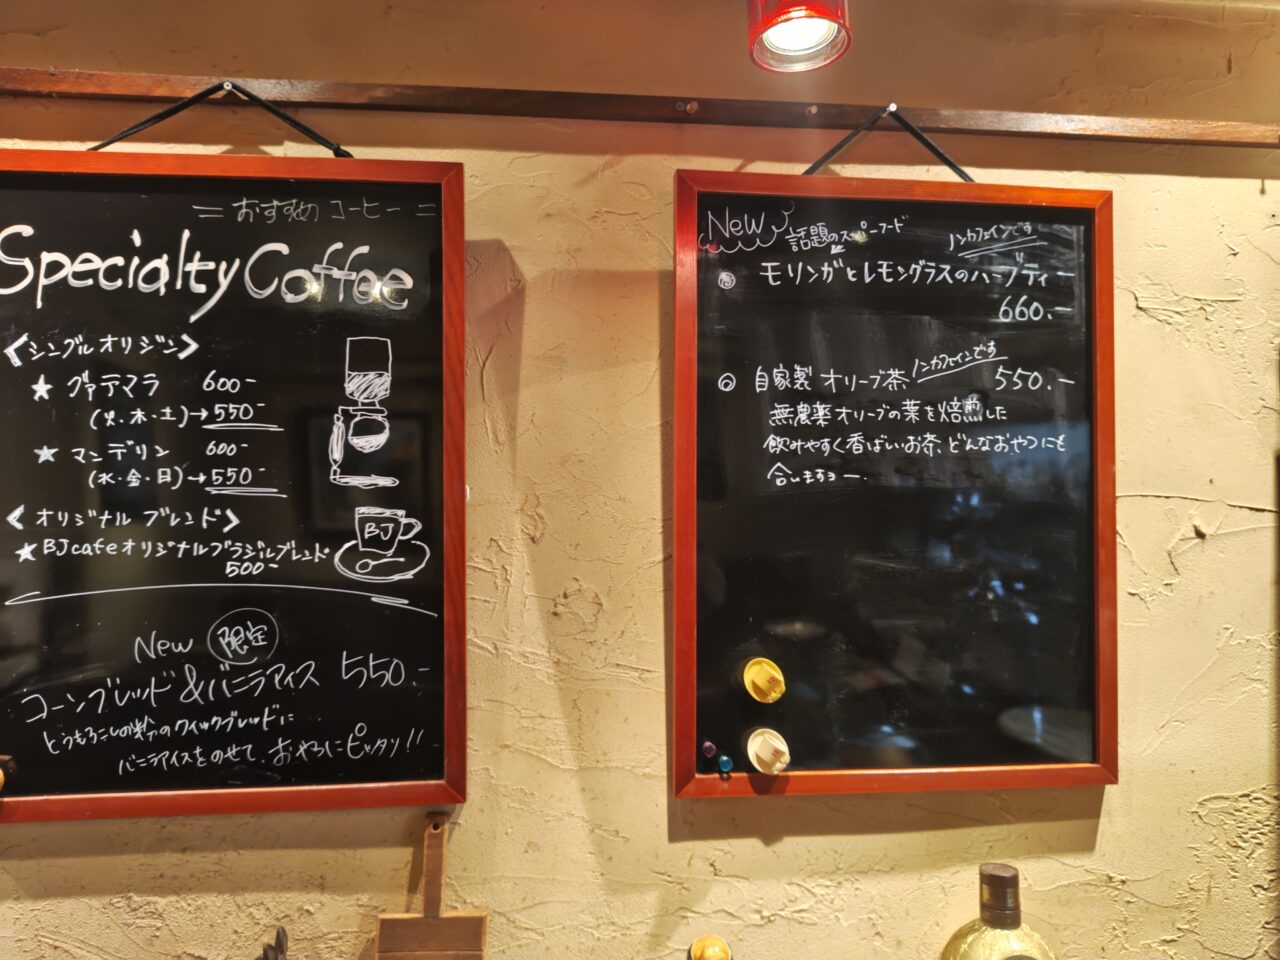 = おすすめ コーヒー =
Specialty Coffee
<シングルオリジン>
★ グァテマラ 600-
(火・木・土)→550-
★ マンデリン 600-
(水・金・日)→550-
<オリジナル ブレンド>
★ BJcafeオリジナルブラジルブレンド
500-
BJ
New 限定
コーンブレッド&バニラアイス 550.-
とうもろこしの粉のクイックブレッドに
バニラアイスをのせて、おやつにピッタリ!!
New 話題のスーパーフード ノンカフェインです
◎ モリンガとレモングラスのハーブティー
660.-
◎ 自家製 オリーブ茶 ノンカフェインです 550.-
無農薬オリーブの葉を焙煎した
飲みやすく香ばしいお茶、どんなおやつにも
合いますヨー.